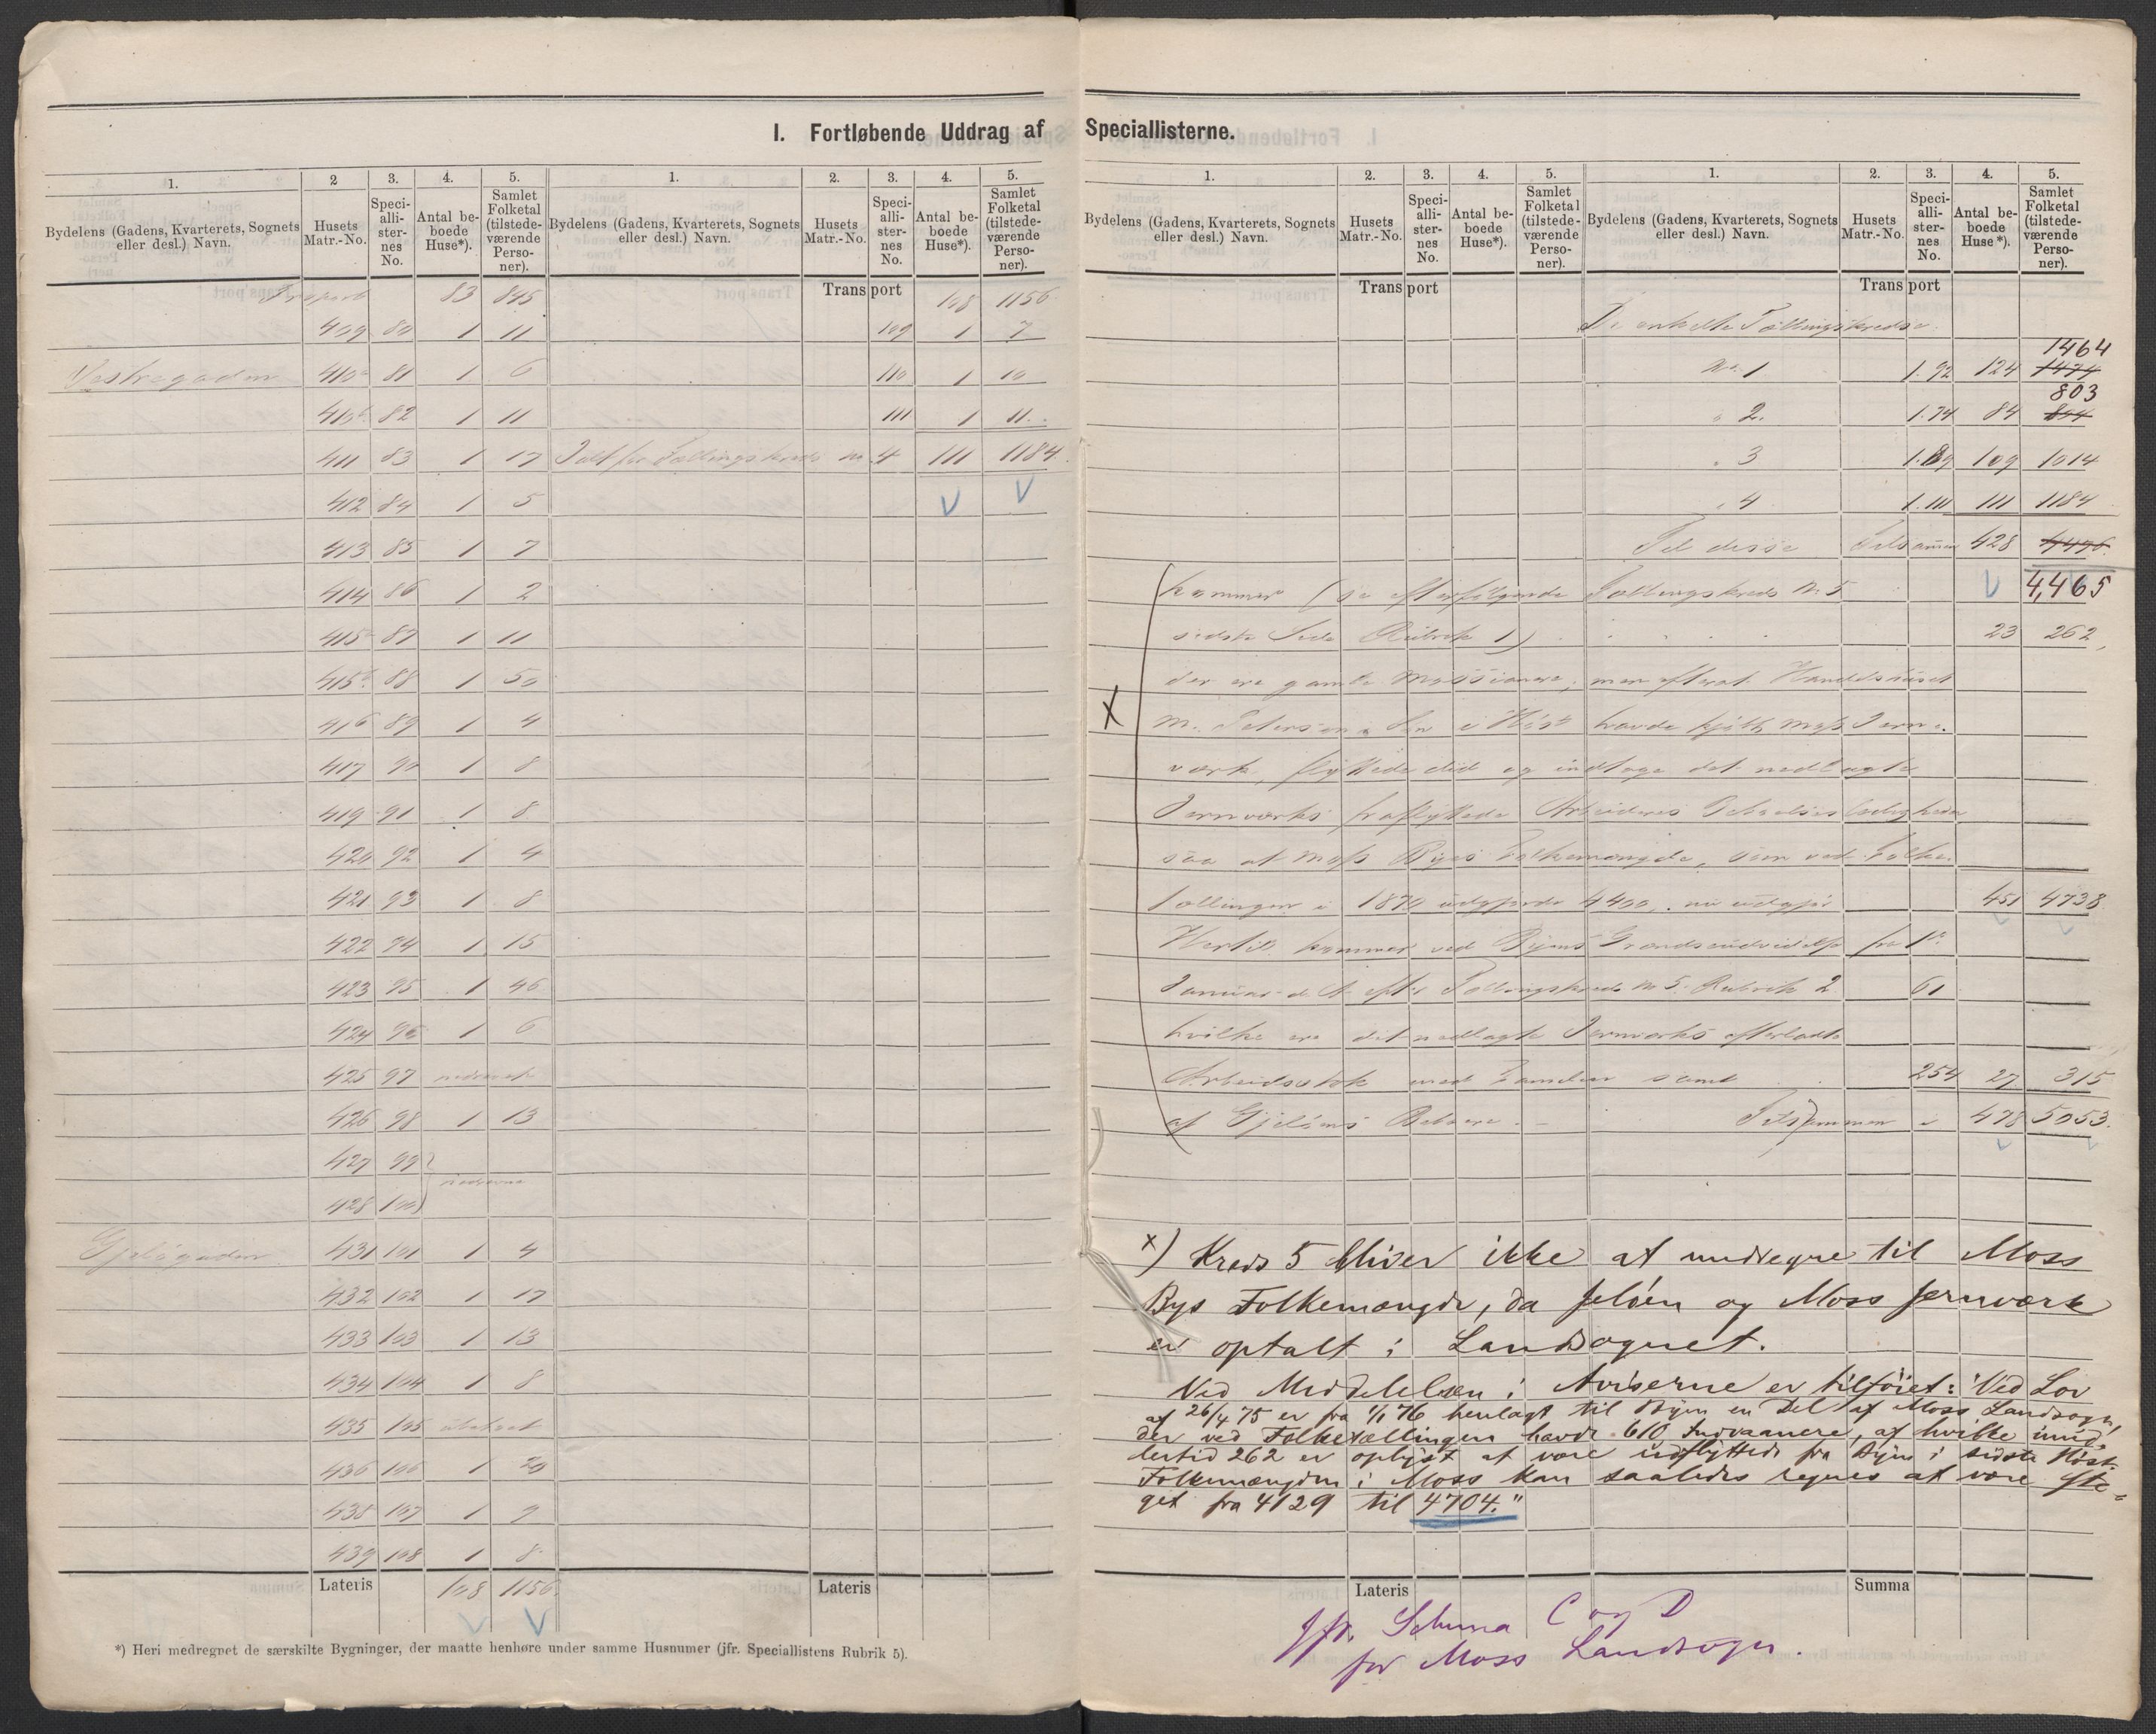 I. Fortløbende Uddrag af Speciallisterne.
1. 2 3. 4. 5. 1. 2. 3. 4. 5.
Bydelens (Gadens, Kvarterets, Sognets eller desl.) Navn. Husets Matr.-No. Speci-alli-ster-nes No. Antal be-boede Huse*). Samlet Folketal (tilstede-værende Perso-ner).
Bydelens (Gadens, Kvarterets, Sognets eller desl.) Navn. Husets Matr.-No. Speci-alli-ster-nes No. Antal be-boede Huse*). Samlet Folketal (tilstede-værende Perso-ner).
Transport 83 845
409 80 1 11
Vestregaden 410a 81 1 6
410b 82 1 11
411 83 1 17
412 84 1 5
413 85 1 7
414 86 1 2
415a 87 1 11
415b 88 1 50
416 89 1 4
417 90 1 8
419 91 1 8
420 92 1 4
421 93 1 8
422 94 1 15
423 95 1 46
424 96 1 6
425 97
426 98 1 13
427 99
428 100
431 101 1 4
432 102 1 17
433 103 1 13
434 104 1 8
435 105 ubeboet
436 106 1 20
438 107 1 9
439 108 1 8
Lateris 108 1156
Transport 108 1156
109 1 7
110 1 10
111 1 11
Ialt for Tællingskreds No 4 111 1184
Lateris
*) Heri medregnet de særskilte Bygninger, der maatte henhøre under samme Husnumer (jfr. Speciallistens Rubrik 5).
1. 2. 3. 4. 5. 1. 2. 3. 4. 5.
Bydelens (Gadens, Kvarterets, Sognets eller desl.) Navn. Husets Matr.-No. Speci-alli-ster-nes No. Antal be-boede Huse*). Samlet Folketal (tilstede-værende Perso-ner).
Bydelens (Gadens, Kvarterets, Sognets eller desl.) Navn. Husets Matr.-No. Speci-alli-ster-nes No. Antal be-boede Huse*). Samlet Folketal (tilstede-værende Perso-ner).
Transport Transport
De enkelte Tællingskredse.
1464
No. 1 1.92 124 1474
803
" 2. 1.74 84 804
" 3 1.89 109 1014
" 4 1.111 111 1184
Til disse Tilsammen 428 4476
kommer (se efterfølgende Tællingskreds No 5 4,465
sidste Side Rubrik 1) 23 262
der ere gamle Mossianere, men efterat Handelshuset
M. Petersen & Søn i Høst havde kjøbt Moss Jern-
værk, flyttede did og indtoge det nedlagte
Jernværks fraflyttede Arbeideres
saa at Moss Byes Folkemængde, som ved Folke-
tællingen i 1870 udgjorde 4400, nu udgjør 451 4738
Hertil kommer ved Byens Grændseudvidelse fra 1ste
Januar d. A. efter Tællingskreds No 5. Rubrik 2 61
hvilke ere det nedlagte Jernværks efterladte
Arbeidsstok med Familier samt 254 27 315
af Gjeløens Beboere Tilsammen 478 5053.
x) Kreds 5 bliver ikke at medregne til Moss
Bys Folkemængde, da Jeløen og Moss Jernværk
er optalt i Landsognet.
Ved Meddelelsen i Aviserne er tilføiet: "Ved Lov
af 26/4 75 er fra 1/1 76 henlagt til Byen en Del af Moss Landsogn,
der ved Folketællingen havde 610 Indvaanere, af hvilke imid-
lertid 262 er oplyst at være udflyttede fra Byen i sidste Høst.
Folkemængden i Moss kan saaledes regnes at være ste-
get fra 4129 til 4704."
Lateris Summa
Jfr. Schema C og D
for Moss Landsogn.